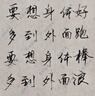 要想身体好
多到外面跑
要想身体棒
多到外面浪